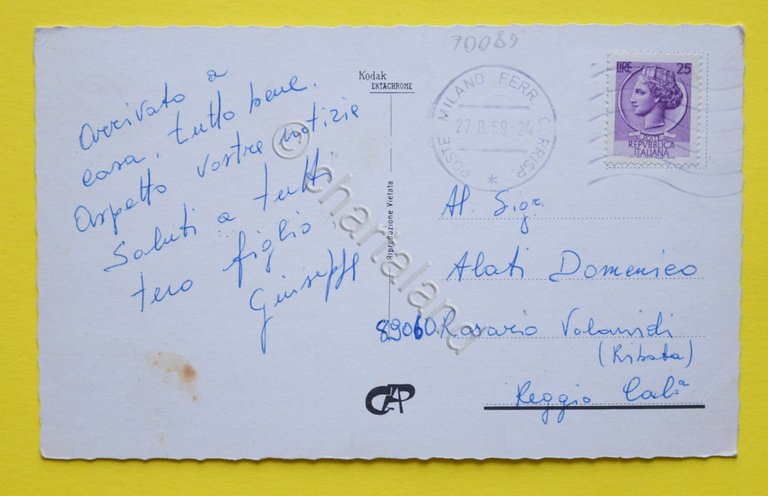 70089
Kodak
EKTACHROME
POSTE MILANO FERR. CORRISP. *
27.8.69 24
LIRE 25
POSTE
REPVBBLICA
ITALIANA
Arrivato a
casa, tutto bene.
Aspetto vostre notizie
Saluti a tutti
tuo figlio
Giuseppe
Riproduzione Vietata
Al Sigr
Alati Domenico
89060 Rosario Valanidi
(Ribata)
Reggio Cala
CAP
© chartaland